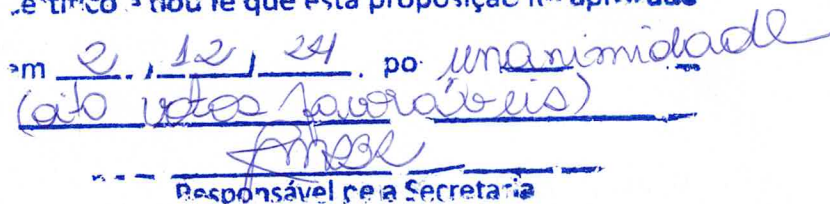 que esta proposição
em 2 / 12 / 24 . po unanimidade
(oito votos favoráveis)
Responsável Secretaria